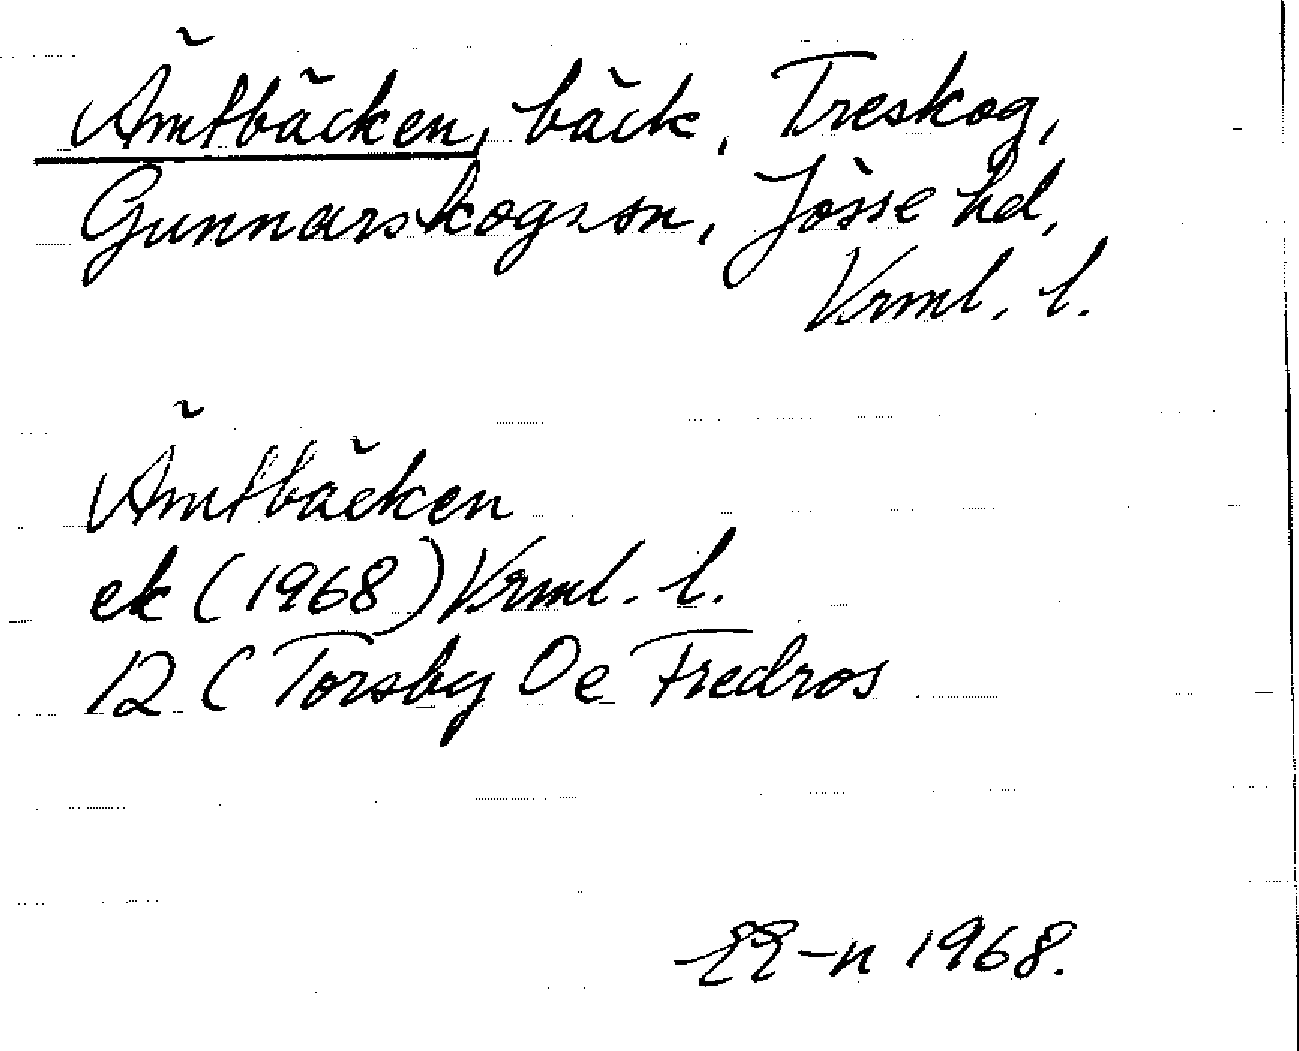 Ämtbäcken, bäck, Treskog,
Gunnarskogs sn, Jösse hd,
Vrml. l.
Ämtbäcken
ek (1968) Vrml. l.
12 C Torsby 0e Fredros
EE-n 1968.